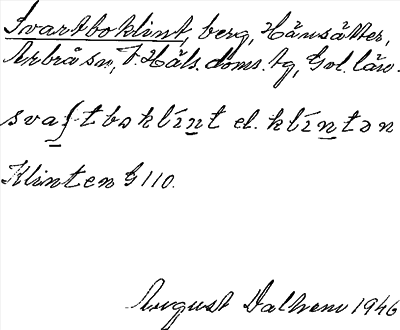 Svartboklint, berg, Hänsätter,
Arbrå sn, V. Häls. doms. tg, Gvl. län.
svaʃtboklint el. klintən
Klinten G 110.
August Dalhem 1946